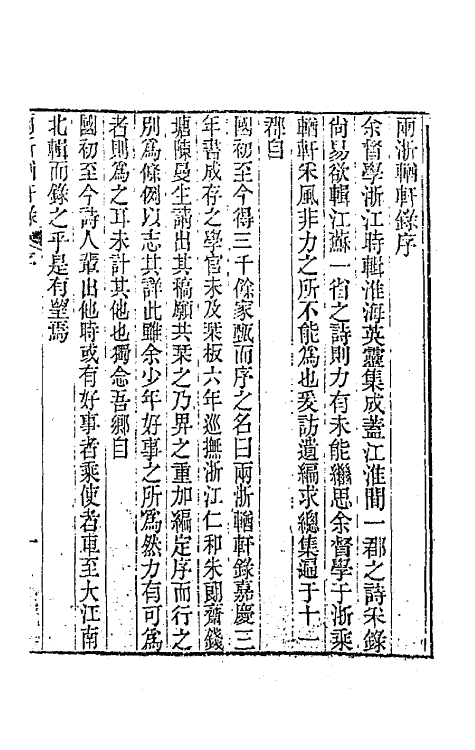 兩浙輶軒錄序
余督學浙江時輯淮海英靈集成蓋江淮間一郡之詩采錄
尚易欲輯江蘇一省之詩則力有未能繼思余督學于浙乘
輶軒采風非力之所不能爲也爰訪遺編求總集遍于十一
郡自
國初至今得三千餘家甄而序之名曰兩浙輶軒錄嘉慶三
年書成存之學官未及栞板六年巡撫浙江仁和朱朗齋錢
塘陳曼生請出其稿願共栞之乃畀之重加編定序而行之
別爲條例以志其詳此雖余少年好事之所爲然力有可爲
者則爲之耳未計其他也獨念吾鄉自
國初至今詩人輩出他時或有好事者乘使者車至大江南
北輯而錄之乎是有望焉
兩浙輶軒錄
序
一